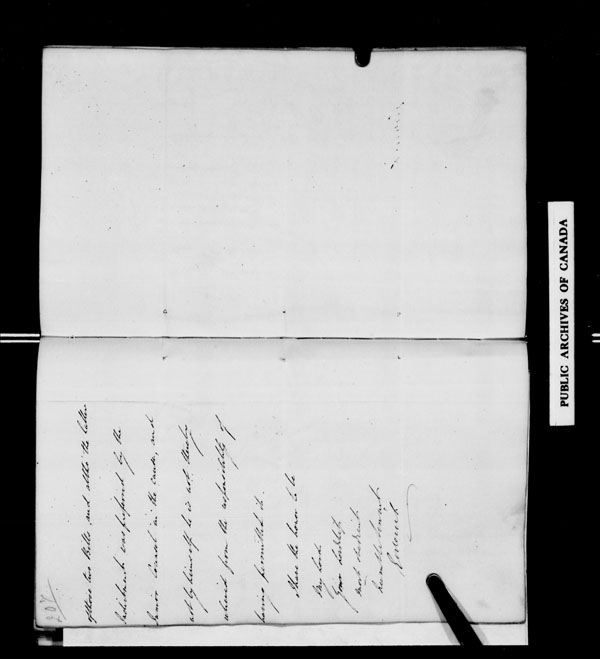 207
of those two Bills, and altho' the latter
Indictment was prepared by the
Junior Counsel in the cause, and
not by himself he is not thereby
relieved from the responsibility of
having permitted it.
I have the honor to be
My Lord,
Your Lordship's
most obedient
humble Servant
PUBLIC ARCHIVES OF CANADA